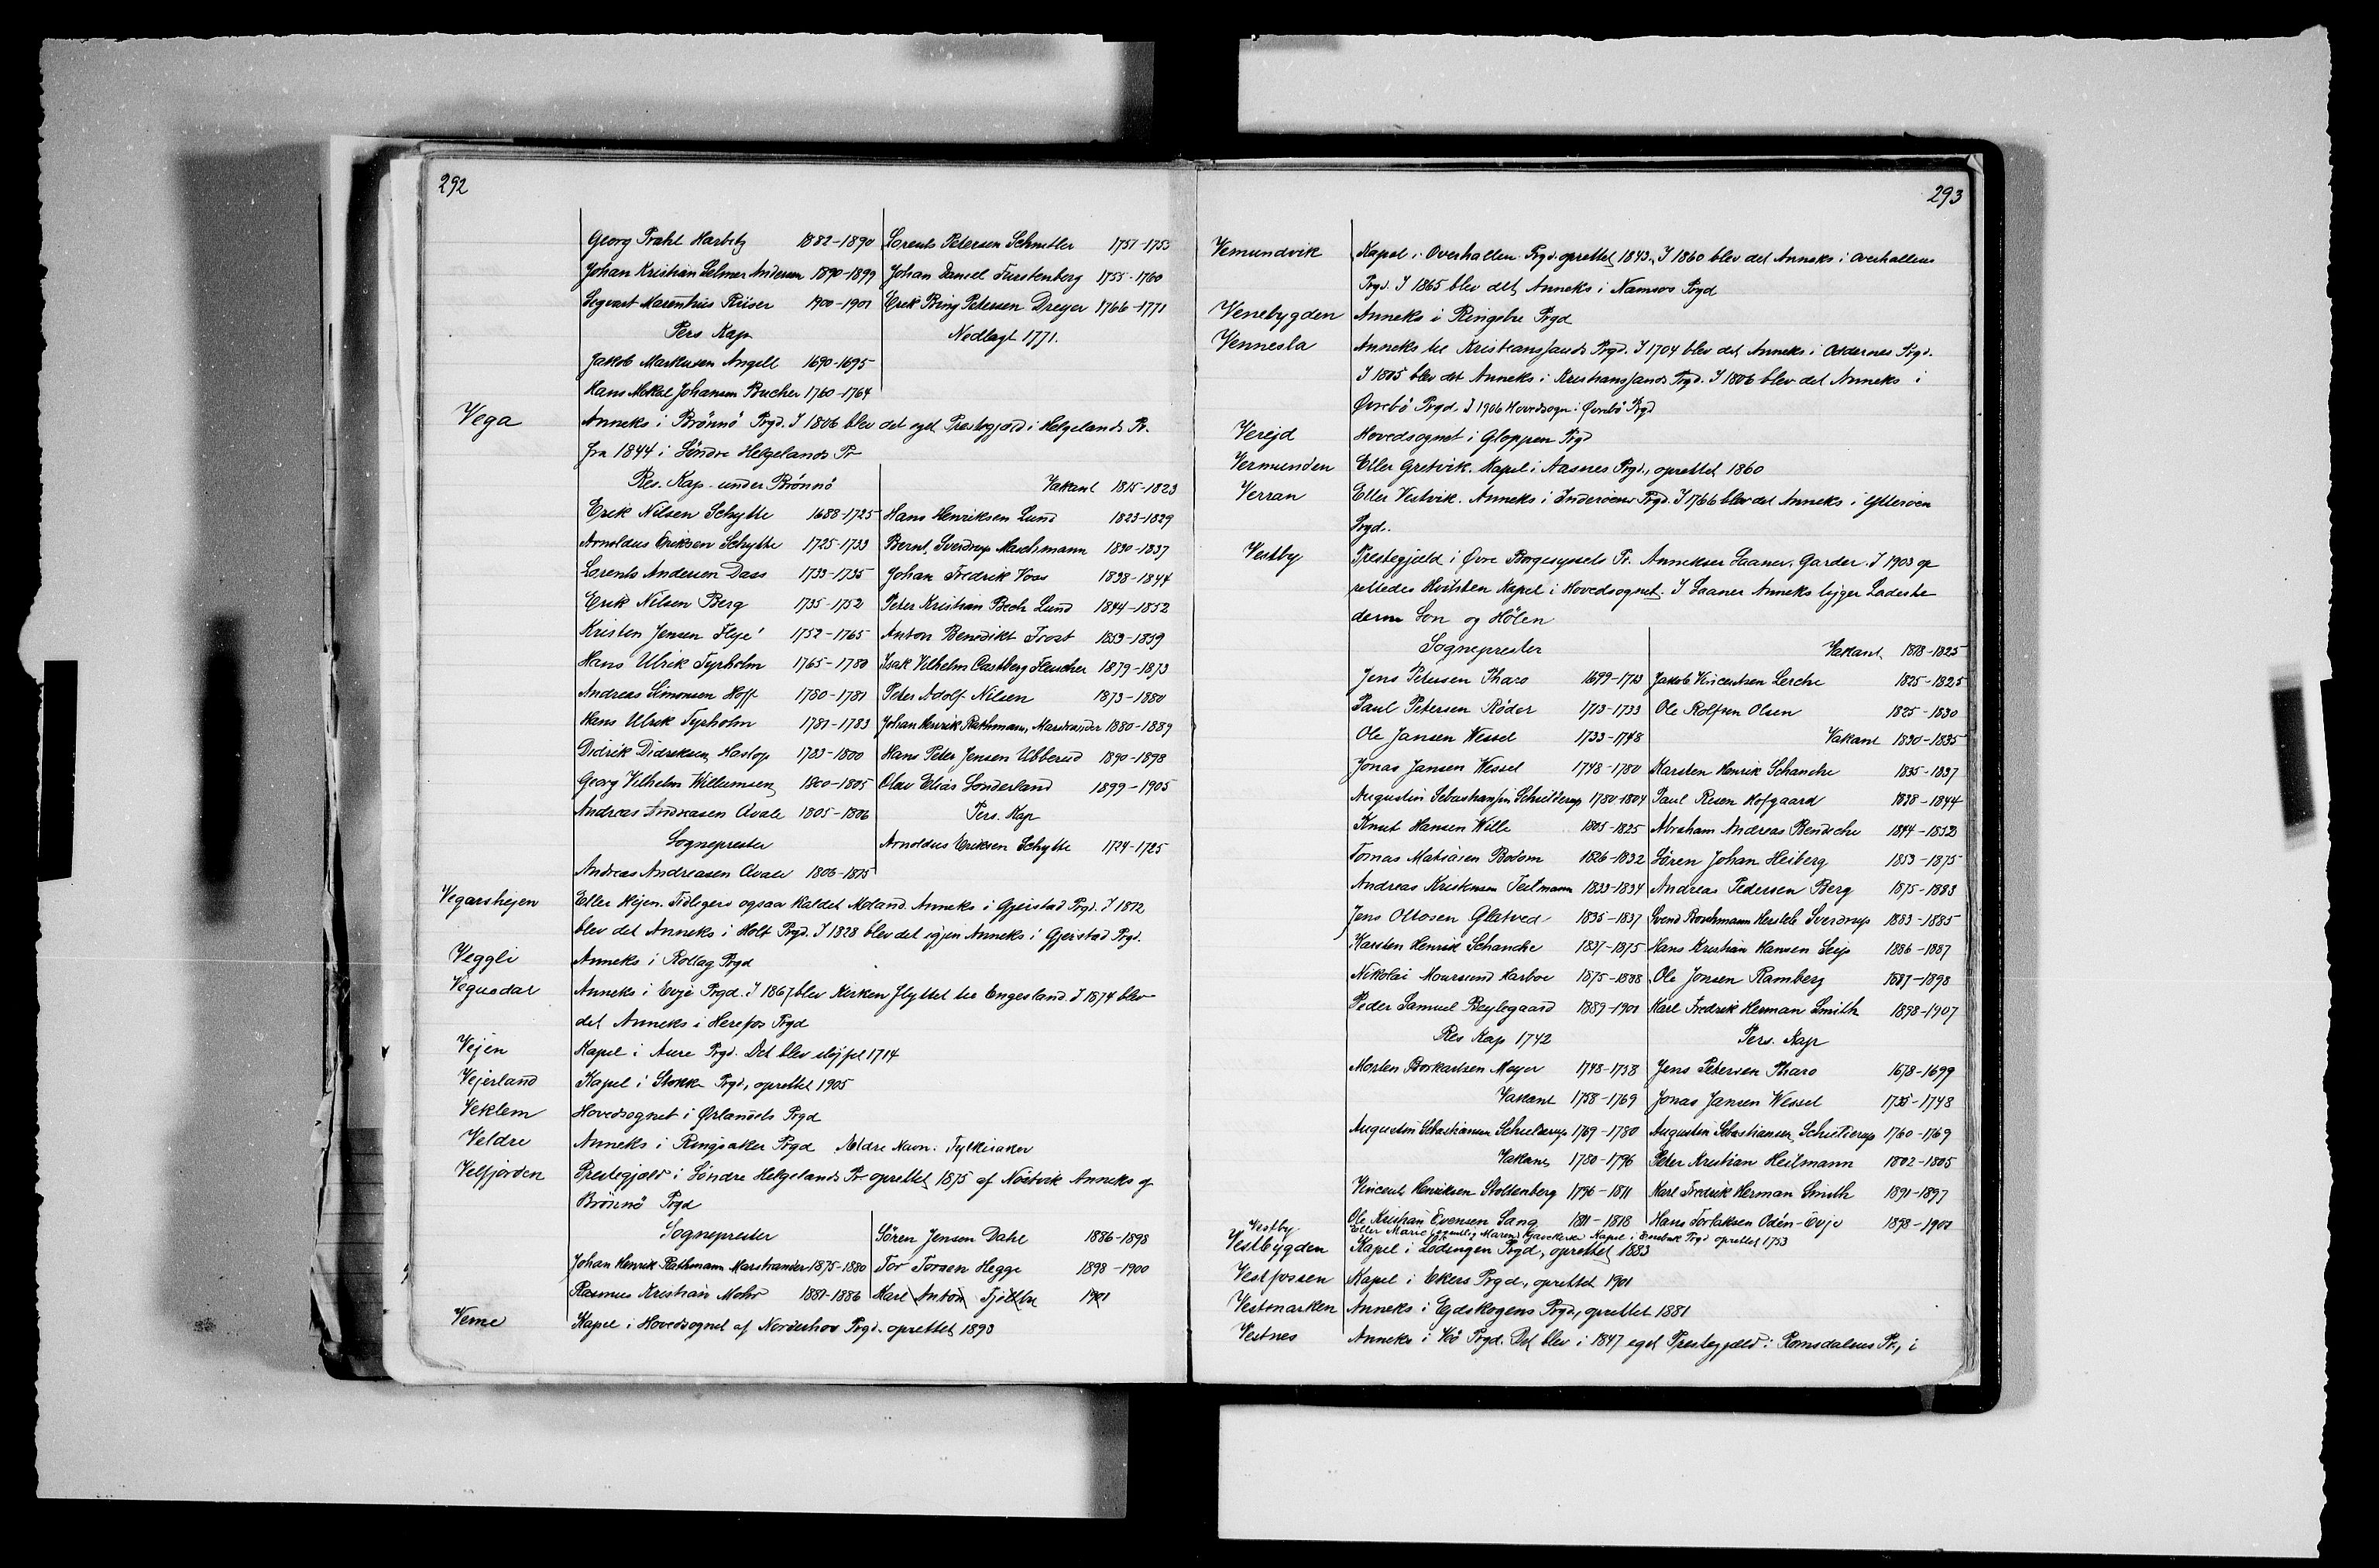 292
Georg Prahl Harbitz 1882-1890 Lorents Petersen Schnitler 1751-1755
Johan Kristian Selmer Andersen 1890-1899 Johan Daniel Fürstenberg 1755-1760
Sigvart Marenthius Riiser 1900-1901 Erik Bing Petersen Dreyer 1766-1771
Pers Kap Nedlagt 1771.
Jakob Markusen Angell 1690-1695
Hans Mikkel Johansen Bucher 1760-1764
Vega Anneks i Brönnö Prgd. I 1806 blev det eget Prestegjæld i Helgelands Pr.
fra 1844 i Söndre Helgelands Pr
Res. Kap. under Brönnö Vakant 1815-1823
Erik Nilsen Schytte 1688-1725 Hans Henriksen Lund 1823-1829
Arnoldus Eriksen Schytte 1725-1733 Bernt Sverdrup Maschmann 1830-1837
Lorents Andersen Dass 1733-1735 Johan Fredrik Voss 1838-1844
Erik Nilsen Berg 1735-1752 Peter Kristian Bech Lund 1844-1852
Kristen Jensen Flye 1752-1765 Anton Benedikt Frost 1853-1859
Hans Ulrik Tyrholm 1765-1780 Isak Vilhelm Castberg Fleischer 1879-1873
Andreas Simonsen Hoff 1780-1781 Peter Adolf Nilsen 1873-1880
Hans Ulrik Tyrholm 1781-1783 Johan Henrik Rathmann Marstrander 1880-1889
Didrik Didriksen Haslop 1783-1800 Hans Peter Jensen Ubberud 1890-1898
Georg Vilhelm Willumsen 1800-1805 Olav Elias Sönderland 1899-1905
Andreas Andreasen Qvale 1805-1806 Pers. Kap
Sogneprester Arnoldus Eriksen Schytte 1724-1725
Andreas Andreasen Qvale 1806-1815
Vegarshejen Eller Hejen. Tidligere ogsaa kaldet Moland. Anneks i Gjerstad Prgd. I 1812
blev det Anneks i Holt Prgd. I 1828 blev det igjen Anneks i Gjerstad Prgd.
Veggli Anneks i Rollag Prgd
Vegusdal Anneks i Evje Prgd. I 1867 blev Kirken flyttet til Engesland. I 1874 blev
det Anneks i Herefos Prgd
Vejen Kapel i Aure Prgd. Det blev slöjfet 1714
Vejerland Kapel i Stokke Prgd, oprettet 1905
Veklem Hovedsognet i Ørlandets Prgd
Veldre Anneks i Ringsaker Prgd Ældre Navn: Fylkisaker
Velfjorden Prestegjæld i Söndre Helgelands Pr oprettet 1875 af Nöstvik Anneks af
Brönnö Prgd
Sogneprester Sören Jensen Dahl 1886-1898
Johan Henrik Rathmann Marstrander 1875-1880 Tor Torsen Hegge 1898-1900
Rasmus Kristian Mohr 1881-1886 Karl Anton 1901
Veme Kapel i Hovedsognet af Norderhov Prgd. oprettet 1893
293
Vemundvik Kapel i Overhallen Prgd. oprettet 1843. I 1860 blev det Anneks i Overhallens
Prgd. I 1865 blev det Anneks i Namsos Prgd
Venebygden Anneks i Ringebu Prgd
Vennesla Anneks til Kristianssands Prgd. I 1704 blev det Anneks i Oddernes Prgd.
I 1805 blev det Anneks i Kristianssands Prgd. I 1806 blev det Anneks i
Øvrebö Prgd. I 1906 Hovedsogn i Øvrebö Prgd
Verejd Hovedsognet i Gloppen Prgd
Vermunden Eller Gretvik. Kapel i Aasnes Prgd., oprettet 1860
Verran Eller Vestvik. Anneks i Inderöens Prgd. I 1766 blev det Anneks i Ytteröen
Prgd.
Vestby Prestegjeld i Øvre Borgesyssels Pr. Annekser Saaner, Garder. I 1903 op
rettedes Hvitsten Kapel i Hovedsognet. I Saaner Anneks ligger Ladeste
derne Son og Hölen
Sogneprester Vakant 1818-1825
Jens Petersen Tharo 1699-1713 Jakob Vincentsen Lerche 1825-1825
Paul Petersen Röder 1713-1733 Ole Rolfsen Olsen 1825-1830
Ole Jansen Wessel 1733-1748 Vakant 1830-1835
Jonas Jansen Wessel 1748-1780 Karsten Henrik Schanche 1835-1837
Augustin Sebastiansen Schielderup 1780-1804 Paul Resen Hofgaard 1838-1844
Knut Hansen Wille 1805-1825 Abraham Andreas Bendeche 1844-1852
Tomas Matiasen Bodom 1826-1832 Sören Johan Heiberg 1853-1875
Andreas Kristensen Teilmann 1833-1834 Andreas Pedersen Berg 1875-1883
Jens Ottosen Glatved 1835-1837 Svend Borchmann Hersleb Sverdrup 1883-1885
Karsten Henrik Schanche 1837-1875 Hans Kristian Hansen Seip 1886-1887
Nikolai Moursund Harboe 1875-1888 Ole Jonsen Ramberg 1887-1898
Peder Samuel Bejlegaard 1889-1901 Karl Fredrik Herman Smith 1898-1907
Res Kap 1742 Pers. Kap
Morten Borkartsen Meyer 1748-1758 Jens Petersen Tharo 1678-1699
Vakant 1758-1769 Jonas Jansen Wessel 1735-1748
Augustin Sebastiansen Schielderup 1769-1780 Augustin Sebastiansen Schielderup 1760-1769
Vakant 1780-1796 Peter Kristian Heilmann 1802-1805
Vincent Henriksen Stoltenberg 1796-1811 Karl Fredrik Herman Smith 1891-1897
Ole Kristian Evensen Sang 1811-1818 Hans Torlaksen Odén-Evje 1898-1901
Vestby Eller Marie Kapel i Prgd oprettet 1753
Vestbygden Kapel i Lödingen Prgd, oprettet 1883
Vestfossen Kapel i Ekers Prgd, oprettet 1901
Vestmarken Anneks i Ejdskogens Prgd, oprettet 1881
Vestnes Anneks i Veö Prgd. Det blev i 1847 eget Prestegjæld i Romsdalens Pr, i